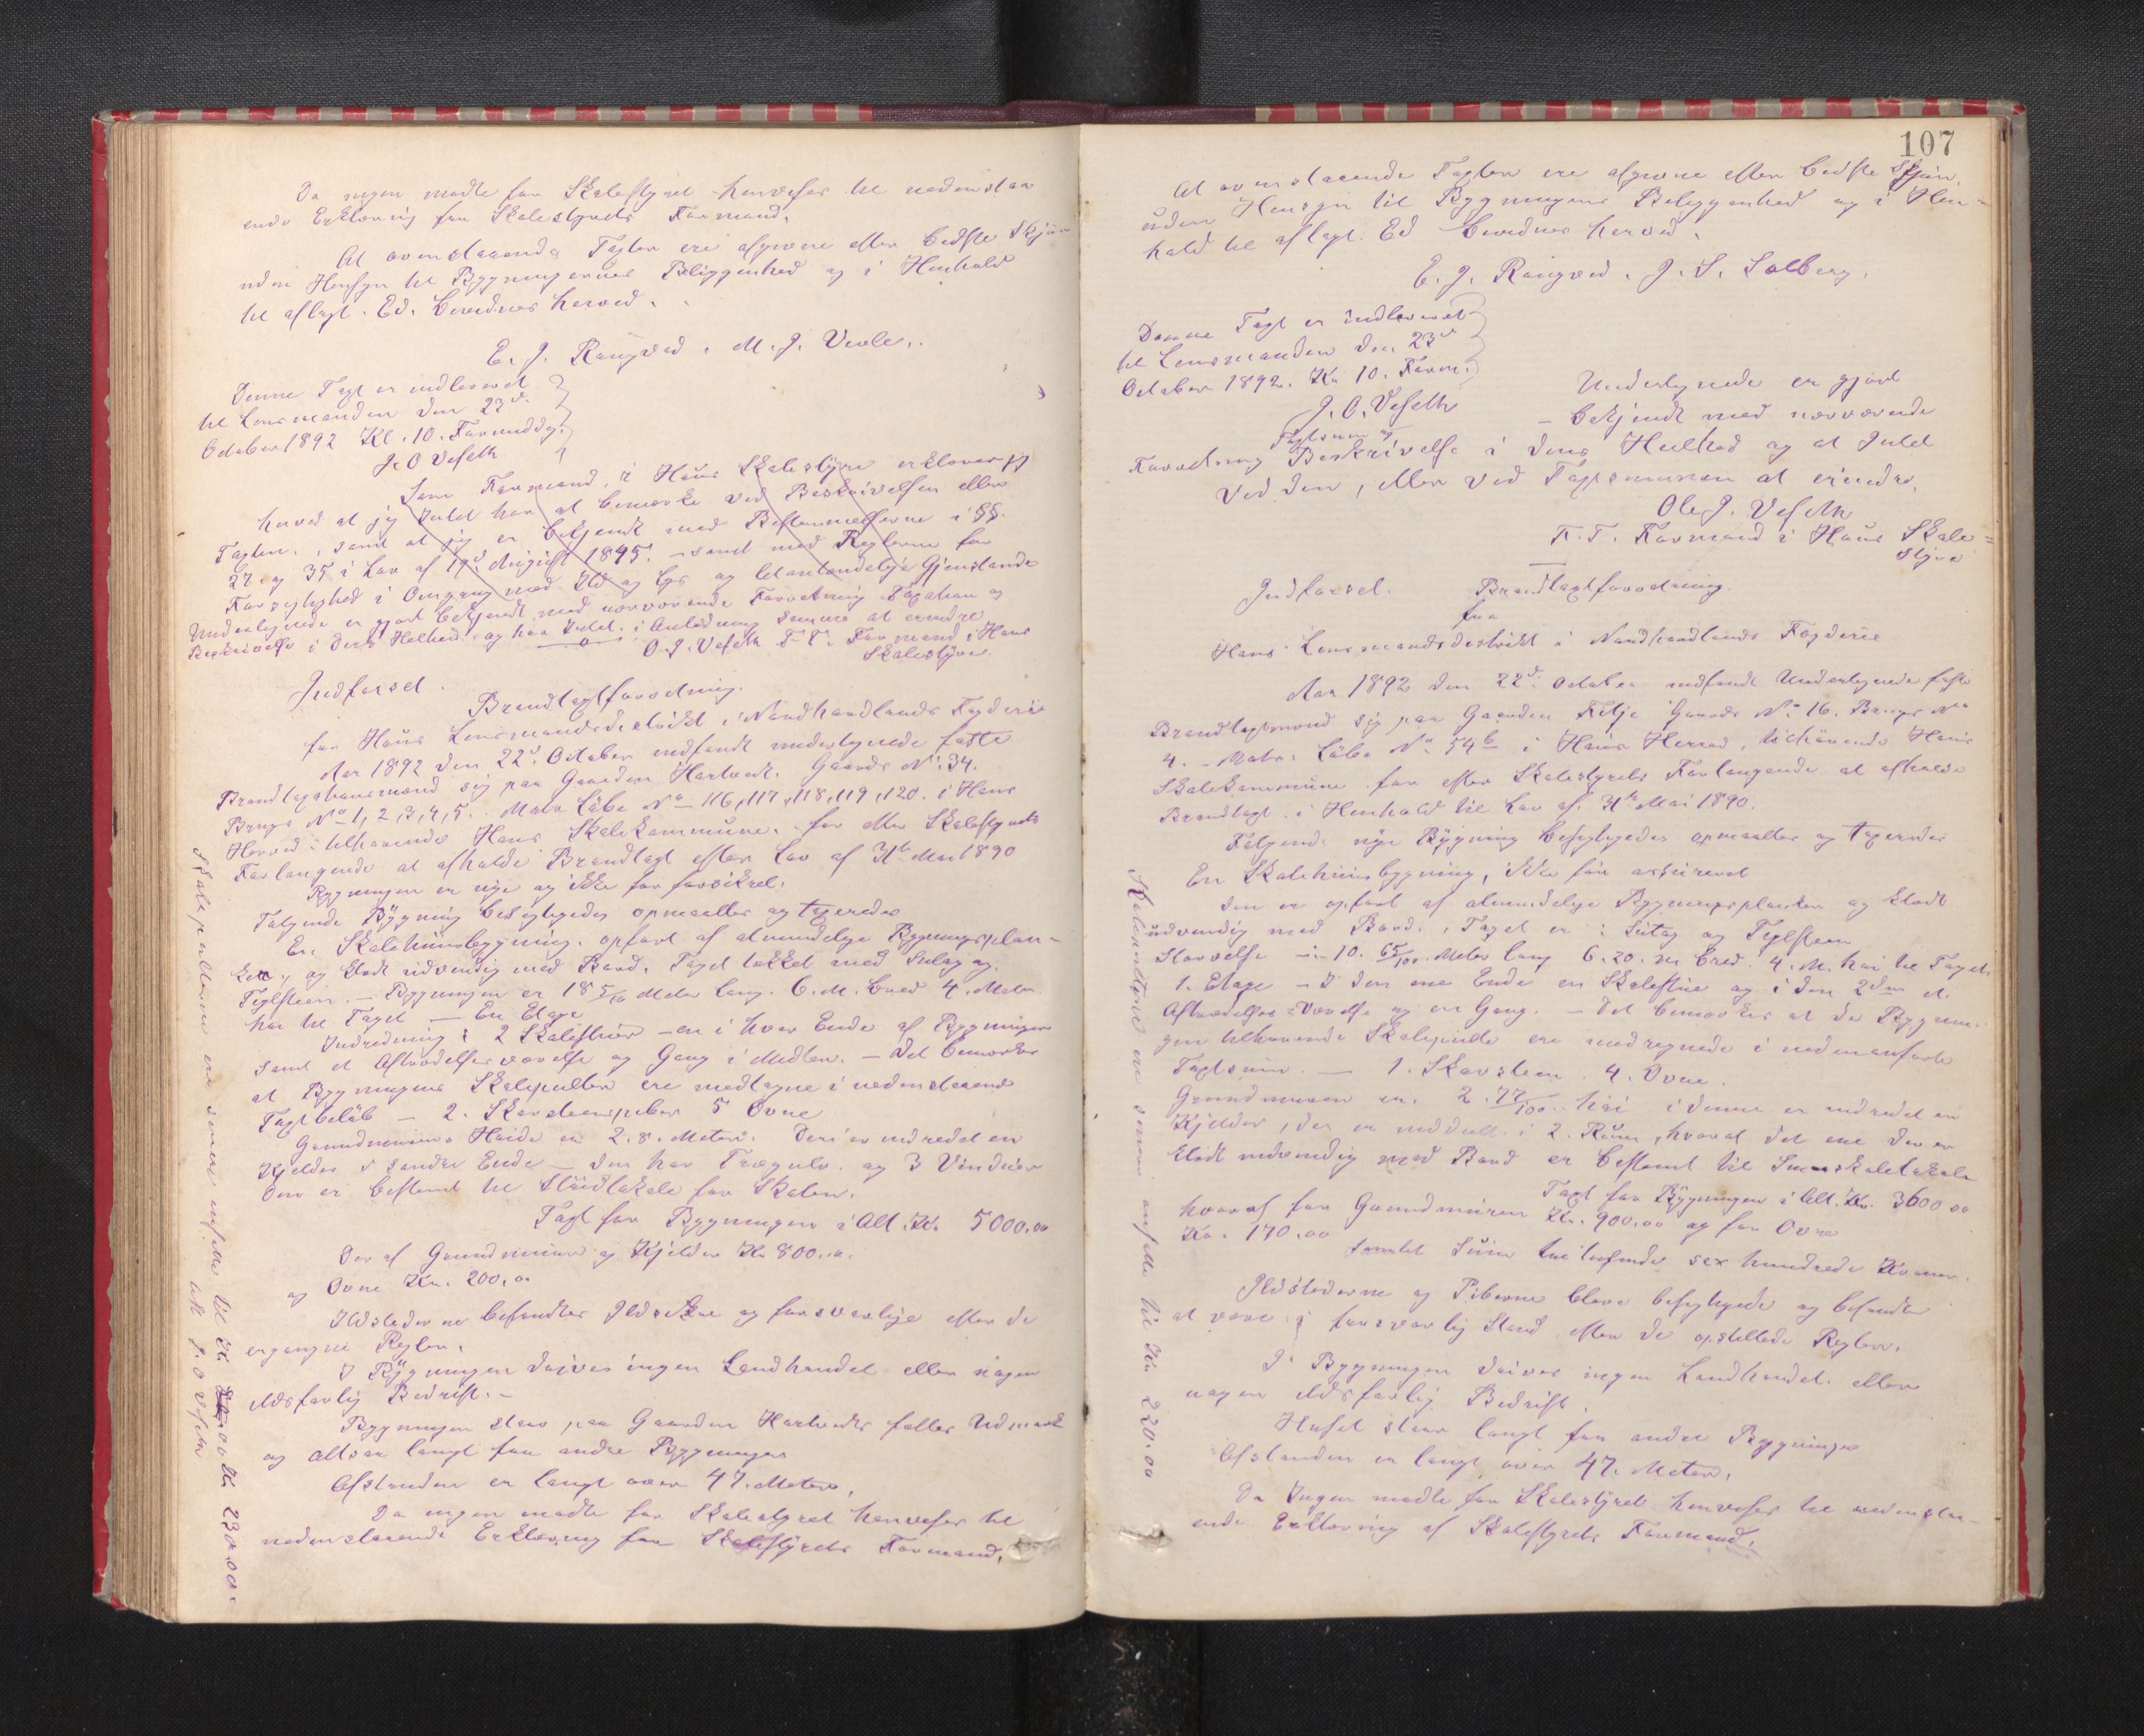 Da ingen mødte for Skolestyret henvises til nedenstaa
ende Erklæring fra Skolestyrets Formand.
At ovenstaaende Taxter ere afgivne efter bedste Skjøn
uden Hensyn til Bygningernes Beliggenhed og i Henhold
til aflagt Ed. bevidnes herved.
E. J. Rongved. M. J. Veole.
Denne Taxt er indleveret
til Lensmanden den 23de
October 1892 Kl. 10. Formiddg.
J. O Vefeth
Som Formand i Haus Skolestyre erklærer
herved at jeg Intet har at bemærke ved Beskrivelsen eller
Taxten, samt at jeg er bekjendt med Bestemmelserne i §§.
27 og 35 i Lov af 19d August 1895. – samt med Reglerne for
Forsigtighed i Omgang med Ild og Lys og letantændelige Gjenstande
Undertegnede er gjort bekjendt med nærværende Forretning Taxation og
Beskrivelse i dens Helhed og har Intet i Anledning samme at erindre
O. J. Vefeth F. T. Formand i Haus
Skolestyre.
Indførsel.
Brandtaxtforretning.
fra Haus Lensmandsdistrikt i Nordhordlands Fogderie
Aar 1892 den 22d. October indfandt undertegnede faste
Brandtaxationsmænd sig paa Gaarden Hartvedt. Gaards No. 34.
Brugs No 1, 2, 3, 4, 5. Matr Løbe No 116, 117, 118, 119, 120. i Haus
Herred tilhørende Haus Skolekommune. for efter Skolestyrets
Forlangende at afholde Brandtaxt efter Lov af 31te Mai 1890
Bygningen er nye og ikke før forsikret.
Følgende Bygning besigtigedes opmaaltes og taxeredes
En Skolehuusbygning. opført af almindelige Bygningsplan-
ker, og klædt udvendig med Bord. Taget tækket med Sutag og
Teglsteen. – Bygningen er 18 5/10 Meter lang. 6. M. bred 4. Meter
høi til Taget — En Etage
Indredning: 2 Skolestuer – en i hver Ende af Bygningen
samt et Aftrædelsesværelse og Gang i Midten. – Det bemærkes
at Bygningens Skolepulter ere medtagne i nedenstaaende
Taxtbeløb – 2. Skorsteenspiber 5 Ovne
Grundmurens Høide er 2.8. Meter. Deri er indredet en
Kjelder i søndre Ende – den har Trægulv. og 3 Vinduer
Den er bestemt til Sløidlokale for Skolen.
Taxt for Bygningen i Alt. Kr. 5000,00
Der af Grundmuren og Kjelder Kr 800,00.
og Ovne Kr. 200,00
Ildstederne befandtes Ildsikre og forsvarlige efter de
ergangne Regler.
I Bygningen drives ingen Landhandel eller nogen
ildsfarlig Bedrift. –
Bygningen staar paa Gaarden Hartvedts fælles Udmark
og altsaa langt fra andre Bygninger
Afstanden er langt over 47. Meter.
Da ingen mødte for Skolestyret henvises til
nedenstaaende Erklæring fra Skolestyrets Formand.
Skolepulterne ere senere ansatte til Kr. 230.00
J. O Vefeth
107
At ovenstaaende Taxter ere afgivne efter bedste Skjøn
uden Hensyn til Bygningens Beliggenhed og i Hen-
hold til aflagt Ed bevidnes herved.
E. J. Rongved. J. S. Solberg.
Denne Taxt er indleveret
til Lensmanden den 23d
October 1892. Kl 10. Form.
J. O. Vefeth
Undertegnede er gjort
bekjendt med nærværende
Taxtsum og
Forretning Beskrivelse i dens Heelhed og at Intet
ved den, eller ved Taxtsummen at erindre.
Ole J. Vefeth
F. T. Formand i Haus Skole=
styre
Indførsel. Brandtaxtforretning.
fra
Haus Lensmandsdistrikt i Nordhordlands Fogderie
Aar 1892 den 22d. October indfandt Undertegnede faste
Brandtaxtmænd sig paa Gaarden Fitje Gaards No 16. Brugs No
4. – Matr. Løbe No 54b i Haus Herred, tilhørende Haus
Skolekommune for efter Skolestyrets Forlangende at afholde
Brandtaxt i Henhold til Lov af 31te Mai 1890.
Følgende nye Bygning besigtigedes opmaaltes og taxeredes
En Skolehuusbygning, ikke før assureret
Den er opført af almindelige Bygningsplanker og klædt
udvendig med Bord. Taget er: Sutag og Teglsteen
Størrelse – 10. 65/100 Meter lang 6.20. m bred. 4. M. høi til Taget.
1. Etage – I den ene Ende en Skolestue og i den 2den et
Aftrædelses=Værelse og en Gang. – Det bemærkes at de Bygnin-
gen tilhørende Skolepulte ere medregnede i nedenanførte
Taxtsum. — 1. Skorsteen. 4. Ovne.
Grundmuren er. 2. 77/100 høi i denne er indredet en
Kjelder, der er inddeelt i 2. Rum, hvoraf det ene der er
klædt indvendig med Bord er bestemt til Smaaskolelokale
Taxt for Bygningen i Alt. Kr. 3600 00
hvoraf for Grundmuren Kr. 900,00 og for Ovne
Kr. 170,00
samlet Sum tre tusinde sex hundrede Kroner.
Ildstederne og Piberne bleve besigtigede og befandtes
at være i forsvarlig Stand efter de opstillede Regler.
I Bygningen drives ingen Landhandel. eller
nogen ildsfarlig Bedrift.
Huset staar langt fra andre Bygninger
Afstanden er langt over 47. Meter.
Da Ingen mødte for Skolestyret henvises til nedenstaa-
ende Erklæring af Skolestyrets Formand.
Skolepultene ere senere ansatte til Kr 220.00